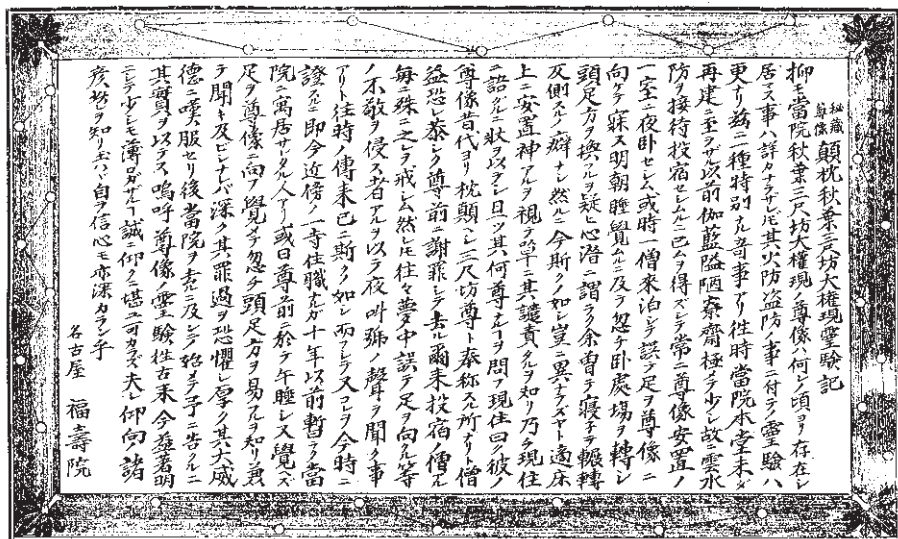 秘蔵尊像 顛枕秋葉三尺坊大権現霊験記
抑モ當院秋葉三尺坊大権現ノ尊像ハ何レノ頃ヨリ存在シ
居マス事ハ詳カナラザレドモ其火防盗防ノ事ニ付テノ霊験ハ
更ナリ茲ニ一種特別ナル奇事アリ往時當院本堂未ダ
再建ニ至ラザル以前伽藍隘陋寮齋極テ少シ故雲水
防ヲ接待投宿セシムルニ已ムヲ得ズシテ常ニ尊像安置ノ
一室ニ夜臥セシム或時一僧來泊シテ誤テ足ヲ尊像ニ
向ケテ寐ス明朝睡覺ルニ及テ忽チ臥處場ヲ轉シ
頭足方ヲ換ルヲ疑ヒ心潜ニ謂ラク余曽テ寝子テ輾轉
反側スルノ癖ナシ然ルニ今斯クノ如シ豈ニ異トラズヤト適床
上ニ安置神アルヲ視テ早ニ其譴責タルヲ知リ乃チ現住
ニ語クルニ狀ヲ以テシ日ツ其何尊ナルヲ問フ現住曰ク彼ノ
尊像昔代ヨリ枕顛ヘシ三尺坊尊ト奉称スル所ナリト僧
益恐レ泰シク尊前ニ謝罪シテ去ル爾来投宿ノ僧ズル
毎ニ殊ニ之ヲ戒ム然レドモ往々夢中誤テ足ヲ向クル等
ノ不敬ヲ侵ス者アルヲ以テ夜叫號ノ聲ヲ聞ク事
アリト往時ノ傳来已ニ斯クノ如シ而シテ又コレヲ今時ニ
證スルニ即今近傍ノ一寺住職ナルガ十年以前暫ク當
院ニ寓居サレタル人アリ或日尊前ニ於テ午睡シ又覺ヘズ
足ヲ尊像ニ向ケ覺メテ忽チ頭足方ヲ易フルヲ知リ兼
テ聞キ及ビシナレバ深ク其罪過ヲ恐懼シ厚ク其大威
徳ニ嘆服セリ後當院ヲ去ルニ及ンデ始テ予ニ告クルニ
其實ヲ以テス嗚呼尊像ノ霊験往古来今益著明
ニシテ少シモ薄ロガザルフ誠ニ仰クニ堪ユ可カラズ夫レ仰向諸
彦之ヲ知リ玉ハヾ自ラ信心モ亦深カラン乎
名古屋 福壽院